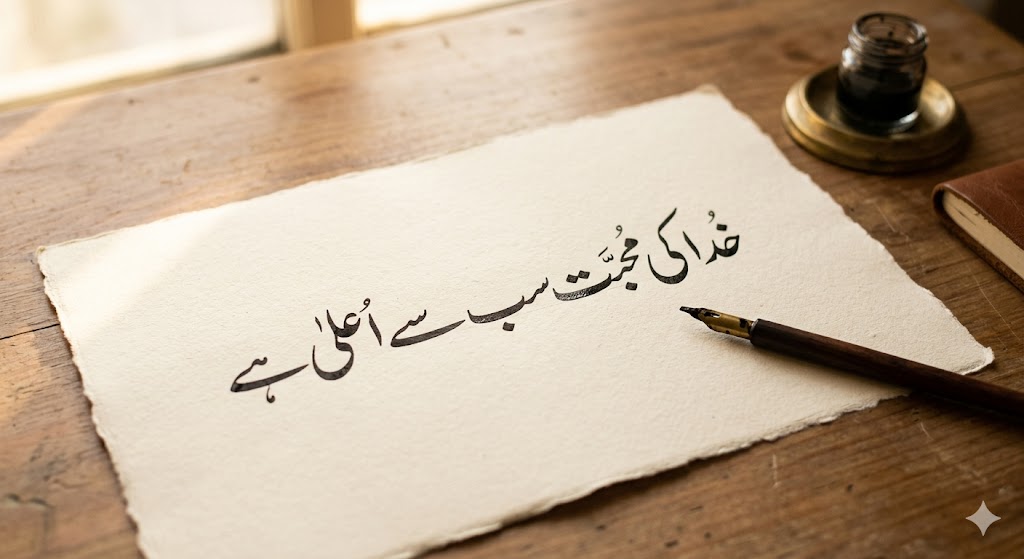 خُدا کی مُحبَّت سب سے اُعلیٰ ہے